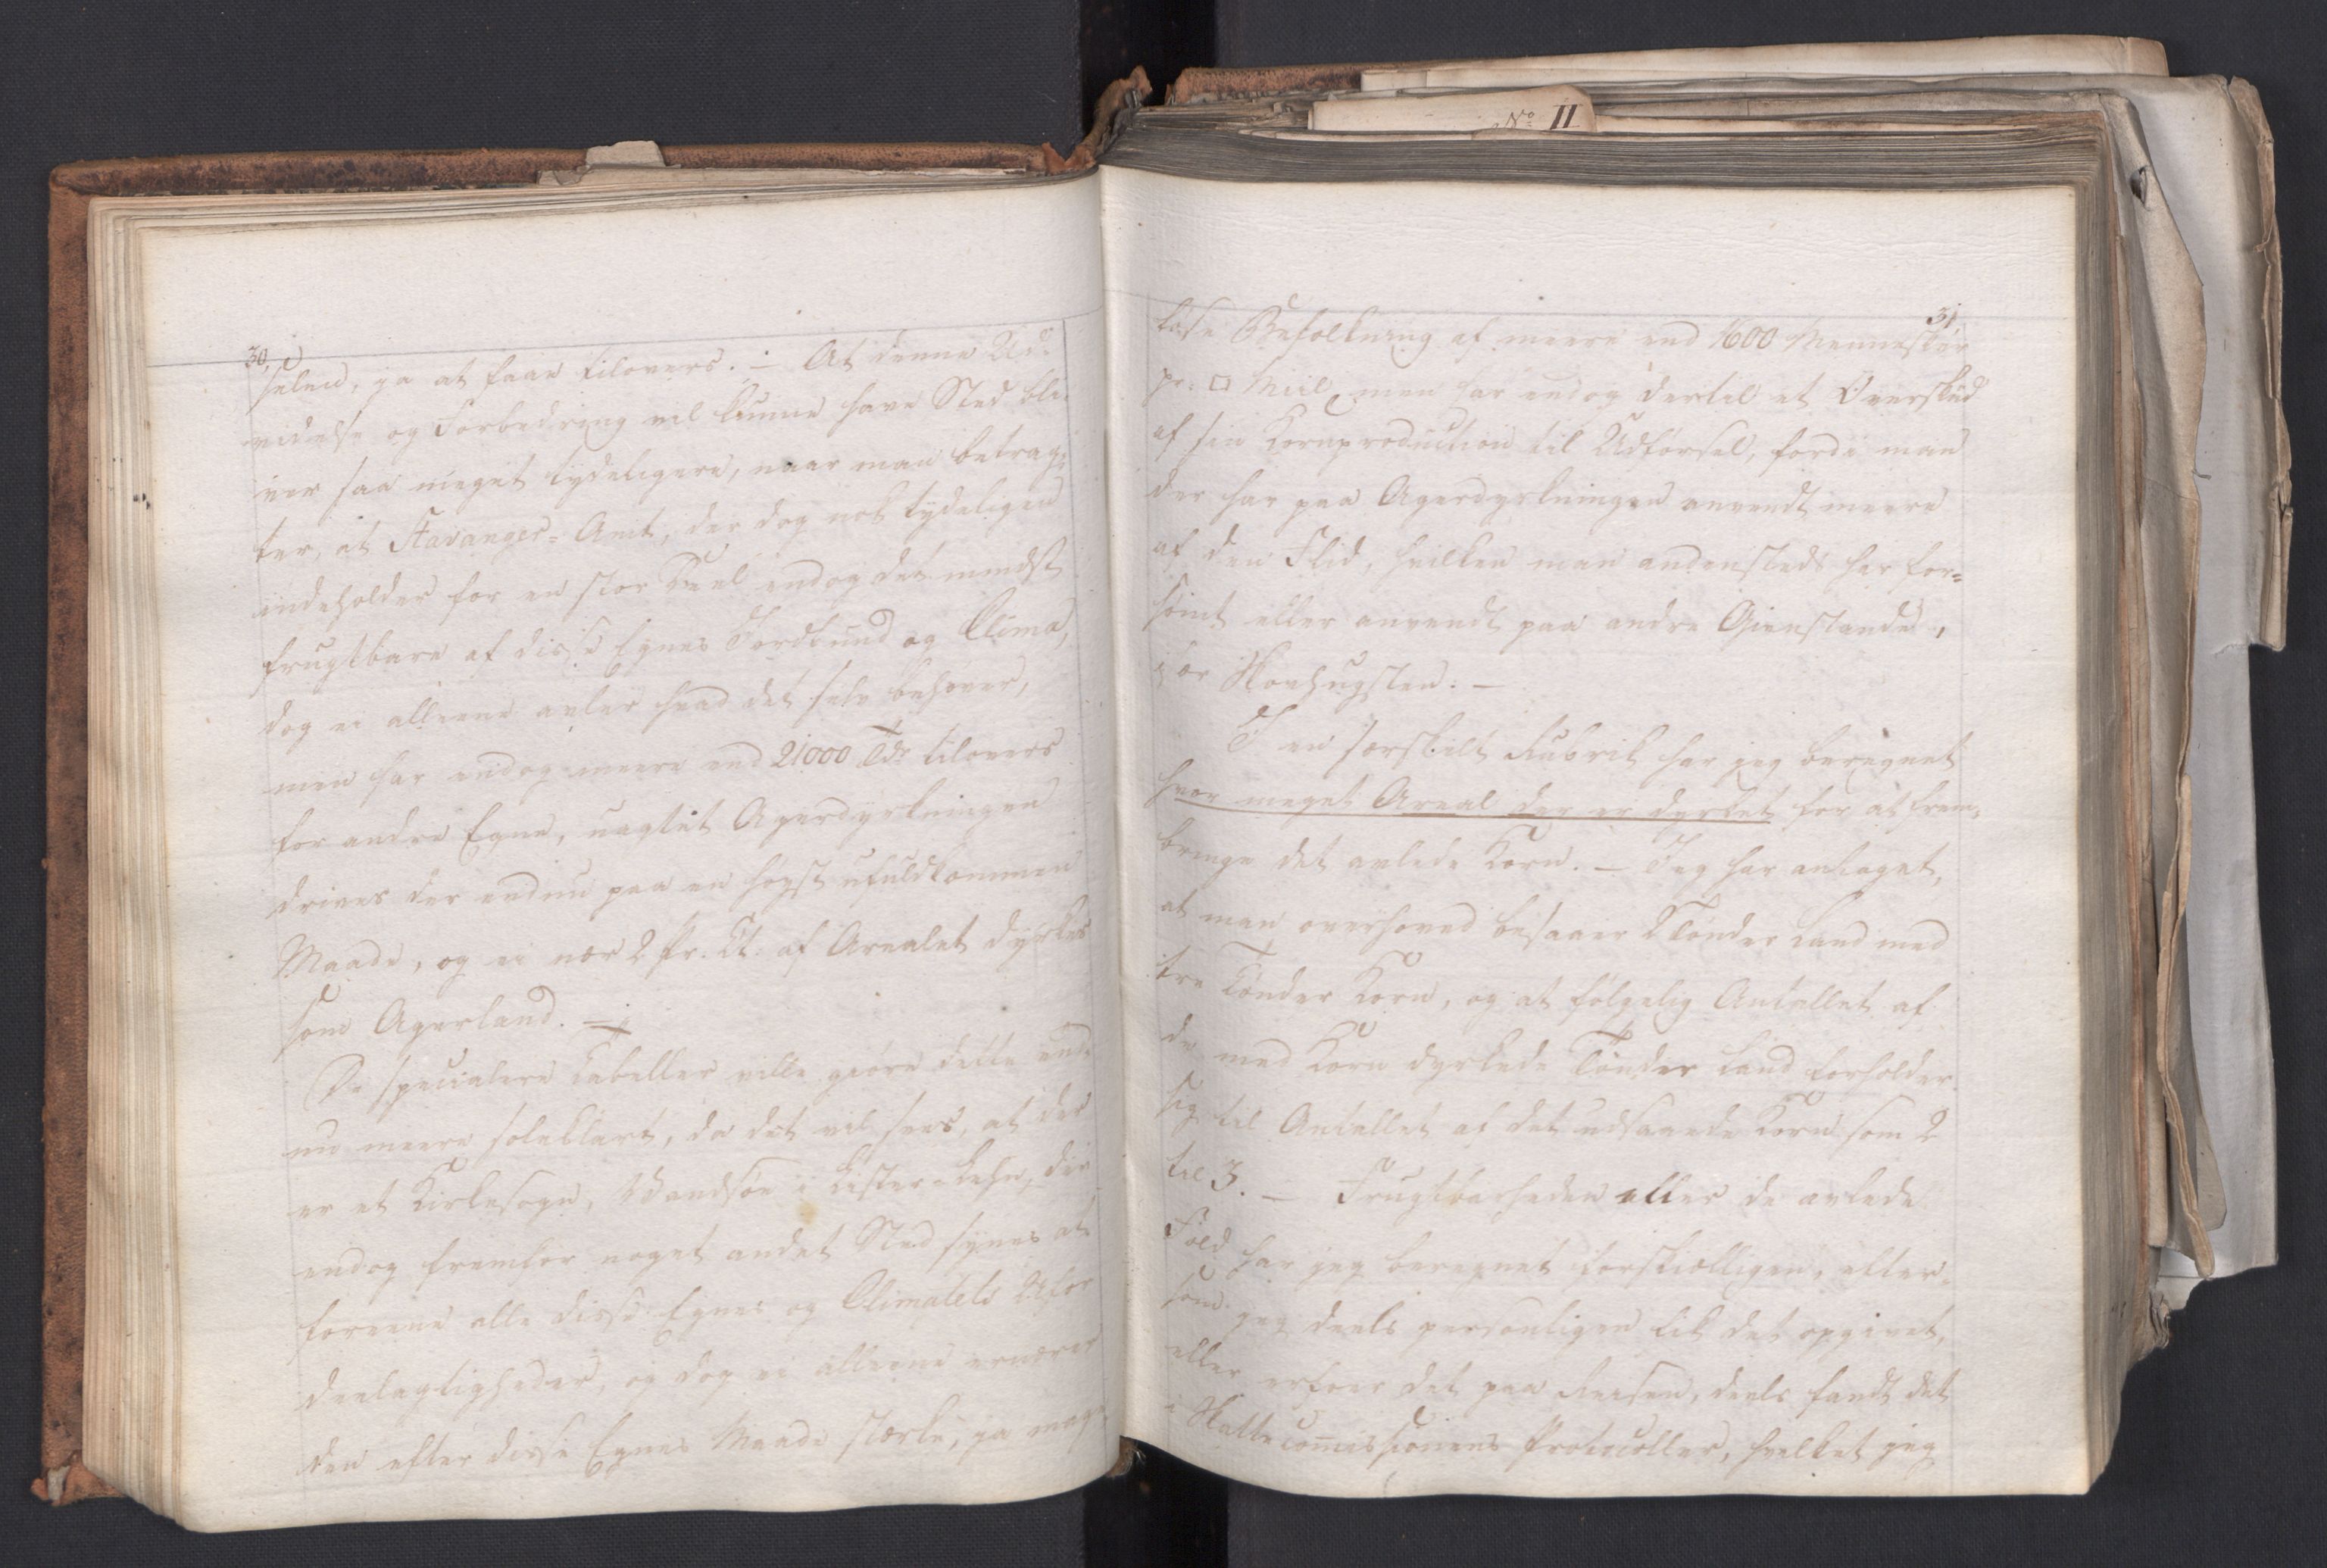 No II
30,
selen, ja at faae tilovers. — At denne Ud-
videlse og Forbedring vil kunne have Sted bli-
ver saa meget tydeligere, naar man betrag-
ter, at Stavanger-Amt, der dog nok tydeligen
indeholder for en stor Deel endog det mindst
frugtbare af disse Egnes Jordbund og Clima,
dog ei alleene avler hvad det selv behøver,
men har endog meere end 21000 Tdr tilovers
for andre Egne, uagtet Agerdyrkningen
drives der endnu paa en høyst ufuldkommen
Maade, og ei nær 2 Pr. Ct. af Arealet dyrkes
som Agerland. —
De specialere Tabeller ville giøre dette end-
nu meere soleklart, da det vil sees, at der
er et Kirkesogn, Vandsøe i Lister-Lehn, der
endog fremfor noget andet Sted synes at
foreene alle disse Egnes og Climatets Ufor
deelagtigheder, og dog ei alleene ernærer
den efter disse Egnes Maade stærke, ja mage-
31.
løse Befolkning af meere end 1600 Mennesker
pr: □ Miil, men har endog dertil et Overskud
af sin Kornproduction til Udførsel, fordi man
der har paa Agerdyrkningen anvendt meere
af den Flid, hvilken man andensteds har for-
sømt eller anvendt paa andre Gienstande,
især Skovhugsten. —
I en særskilt Rubrik har jeg beregnet
hvor meget Areal der er dyrket for at frem-
bringe det avlede Korn. — Jeg har antaget,
at man overhoved besaaer 2 Tønder Land med
tre Tønder Korn, og at følgelig Antallet af
de med Korn dyrkede Tønder Land forholder
sig til Antallet af det udsaaede Korn som 2
til 3. — Frugtbarheden eller de avlede
Fold har jeg beregnet forskiælligen, efter-
som jeg deels personligen fik det opgivet,
eller erfoer det paa Reisen, deels fandt det
i Skattecommissionens Protocoller, hvilket jeg